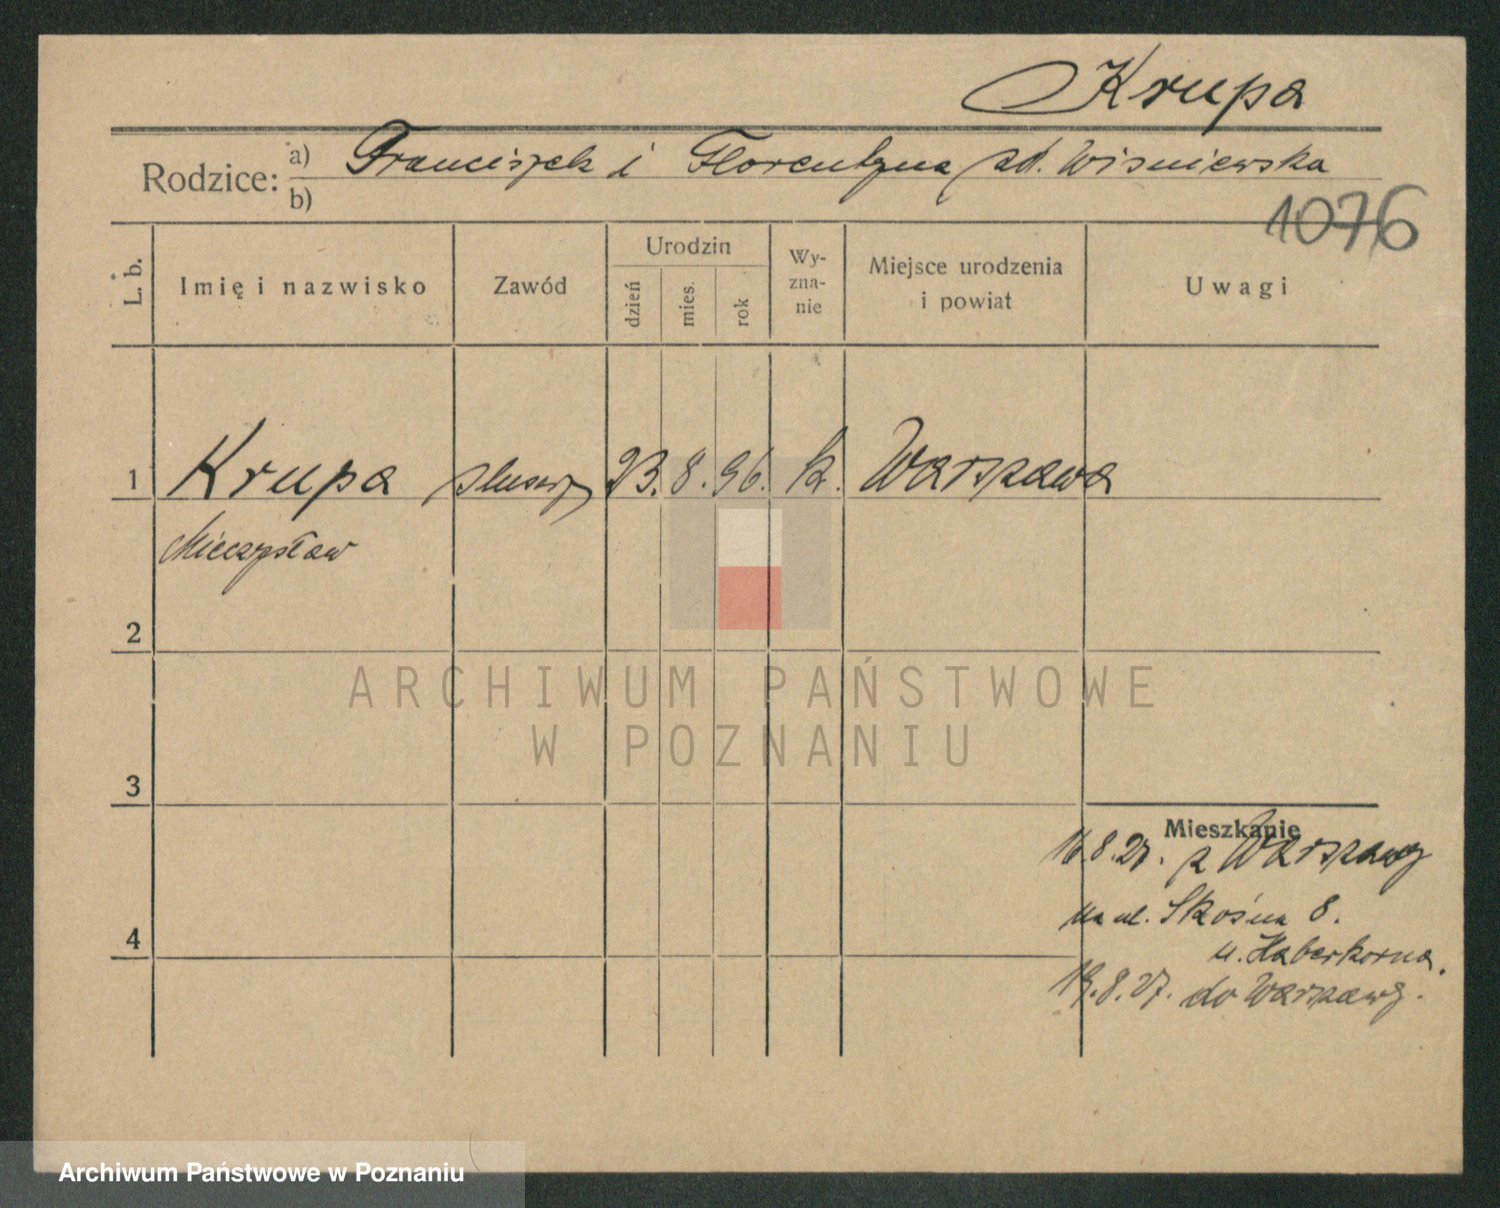 Krupa
Rodzice: a) Franciszek i Florentyna zd. Wiśniewska
b)
1076
L. b.
Imię i nazwisko
Zawód
Urodzin
dzień
mies.
rok
Wy-
zna-
nie
Miejsce urodzenia
i powiat
Uwagi
1 Krupa ślusarz 23. 8. 96. k. Warszawa
Mieczysław
2
ARCHIWUM PAŃSTWOWE
W POZNANIU
3
Mieszkanie
16.8.27. z Warszawy
na ul. Skośna 8.
u. Haberkorna.
4
19.8.27. do Warszawy.
Archiwum Państwowe w Poznaniu